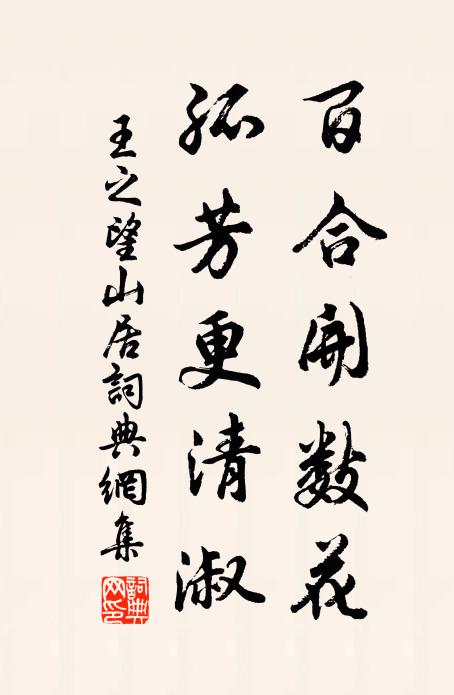 百合開數花
孤芳更清淑
王之望山居詞典網集
詞典網印